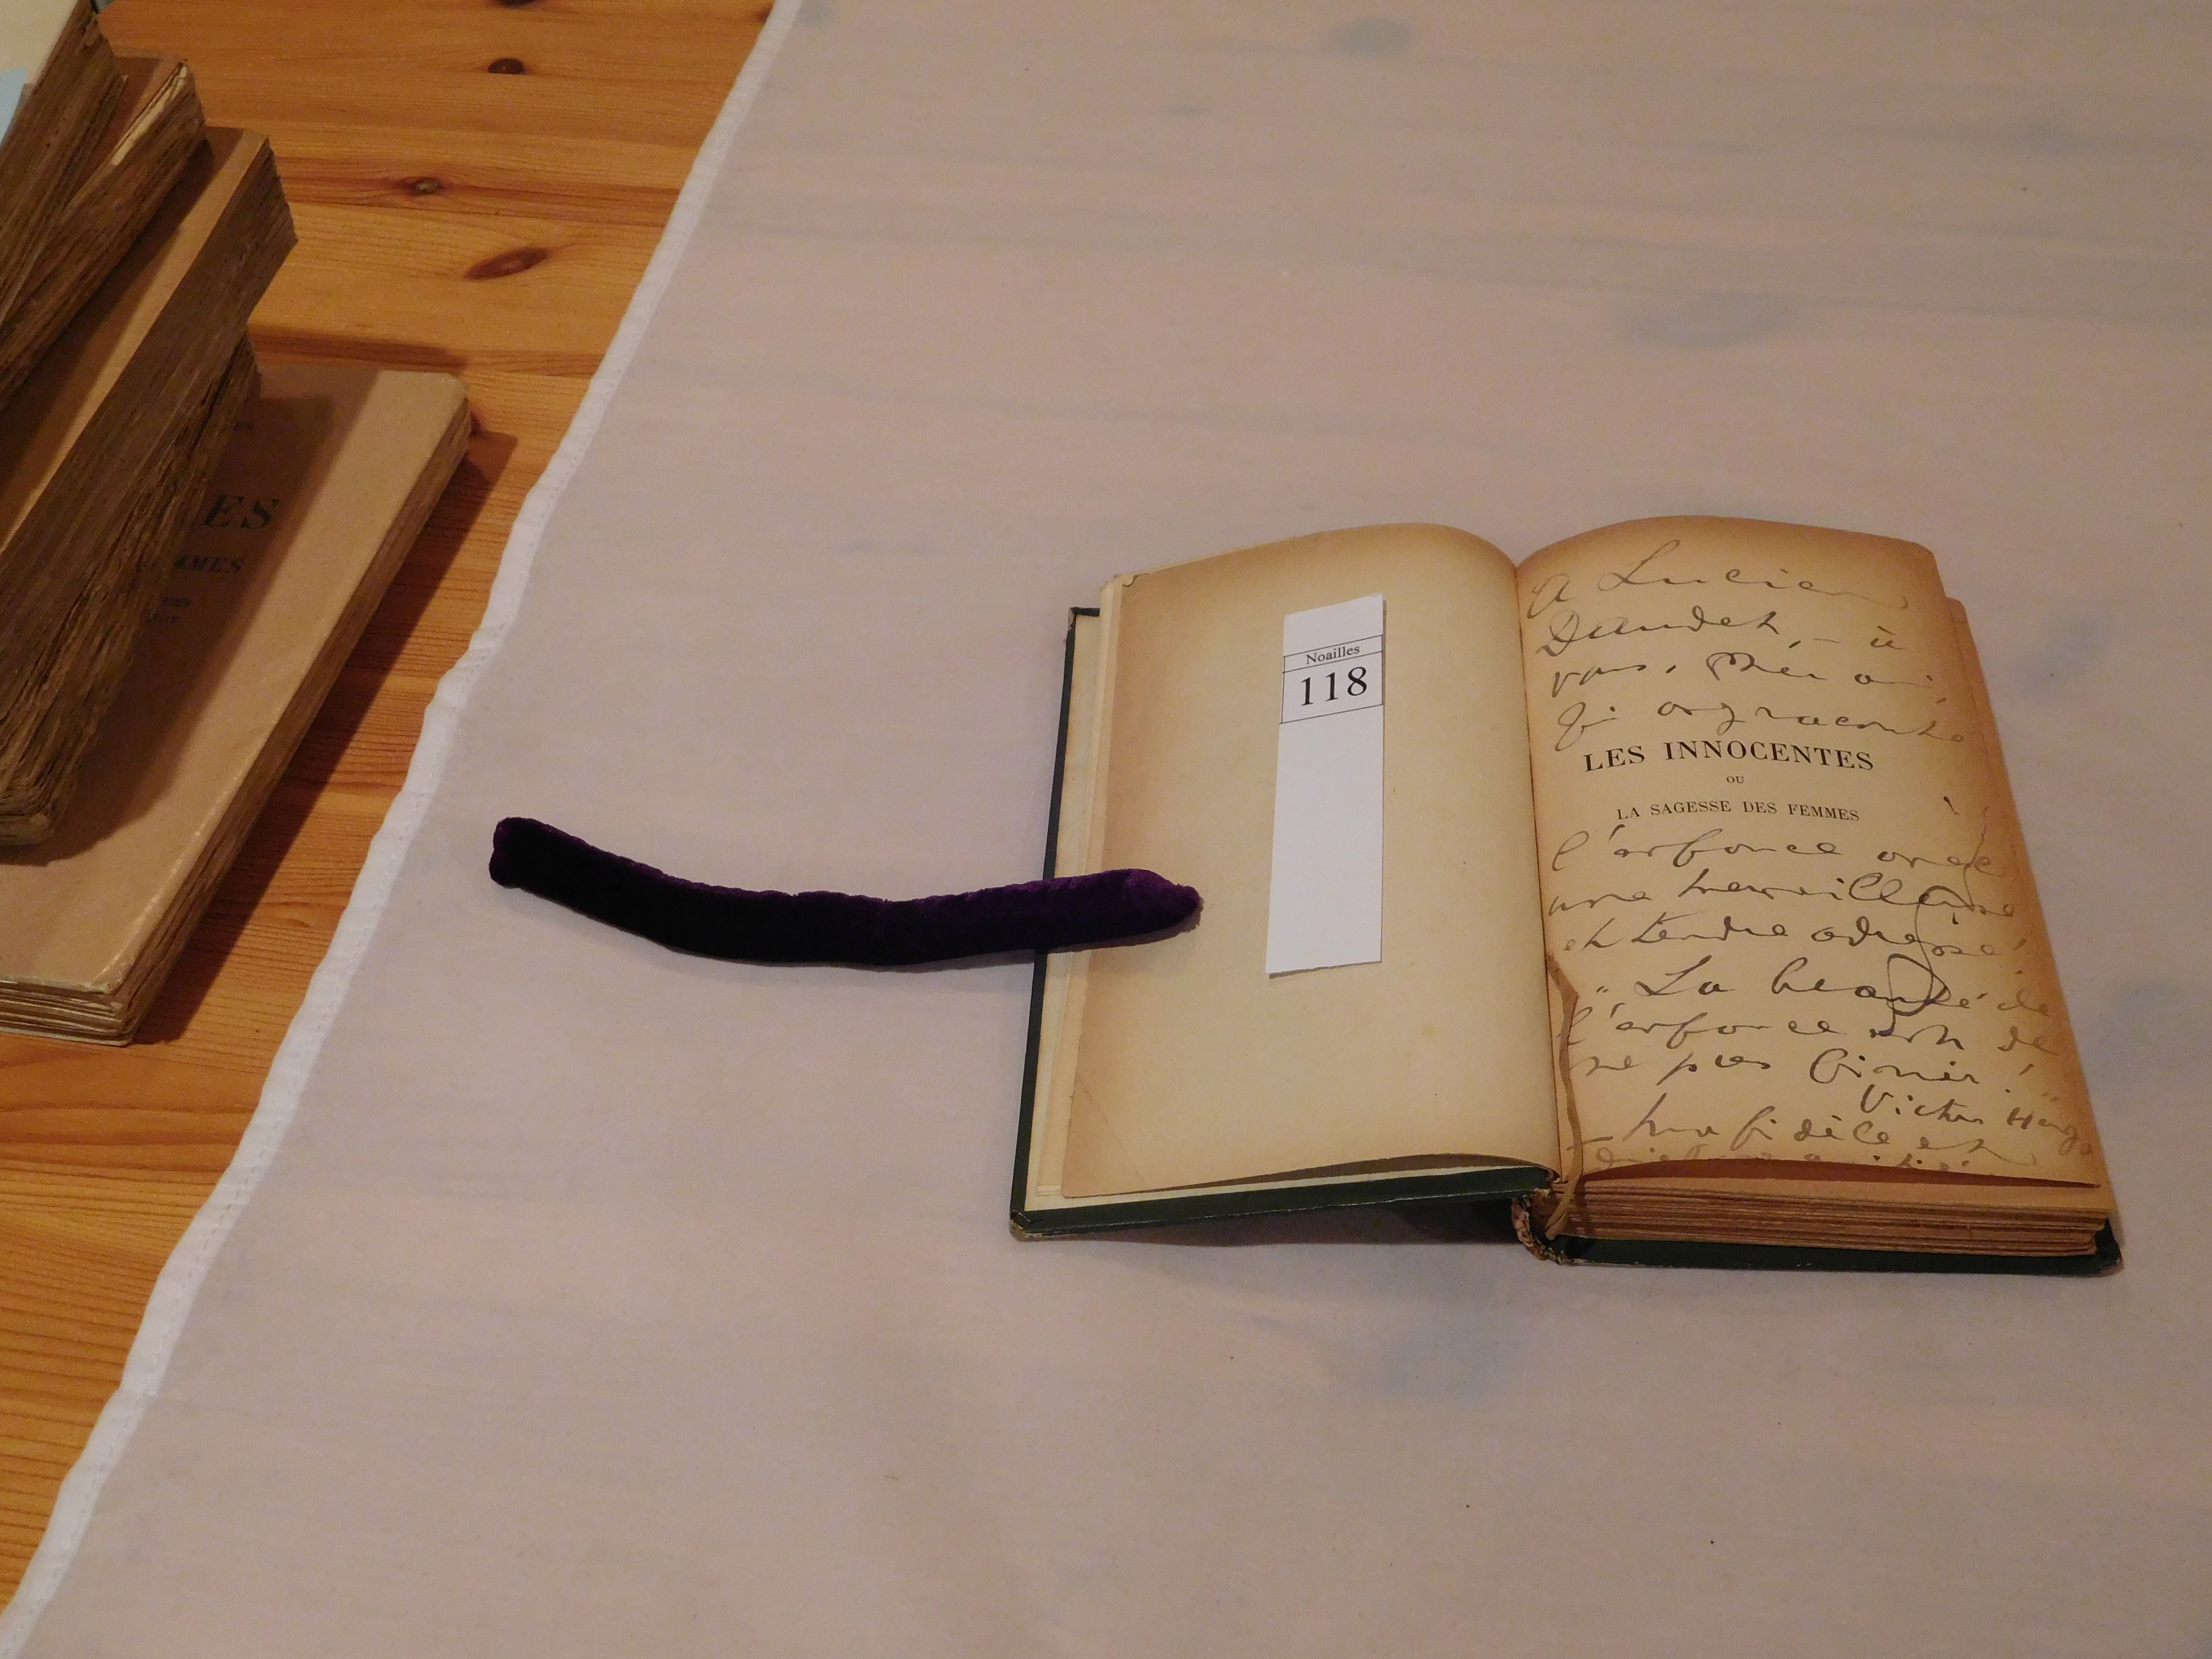 ES
MMES
Noailles
118
A Lucien
Daudet, — à
vous, cher ami,
qui
LES INNOCENTES
OU
LA SAGESSE DES FEMMES
l'enfance avec
une merveilleuse
et tendre adresse!
"La beauté de
l'enfance est de
ne pas finir!"
Victor Hugo
fidèle et